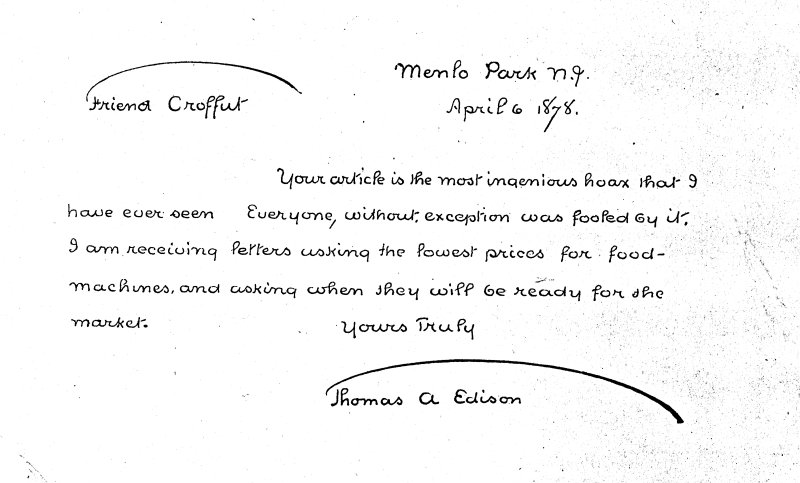 Menlo Park N.J.
April 6 1878.
Friend Croffut
Your article is the most ingenious hoax that I
have ever seen Everyone, without, exception was fooled by it,
I am receiving letters asking the lowest prices for food-
machines, and asking when they will be ready for the
market.
Yours Truly
Thomas A Edison